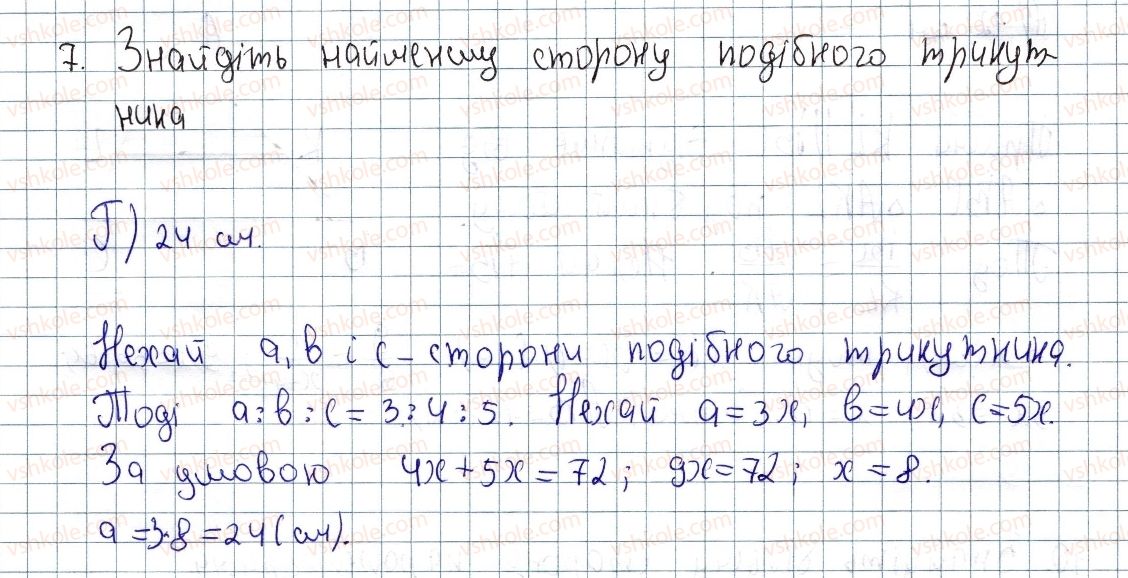 7. Знайдіть найменшу сторону подібного трикут-
ника
Г) 24 см.
Нехай a, b і c – сторони подібного трикутника.
Тоді a:b:c = 3:4:5. Нехай a=3x, b=4x, c=5x.
За умовою 4x+5x=72; 9x=72; x=8.
a=3·8=24(см).